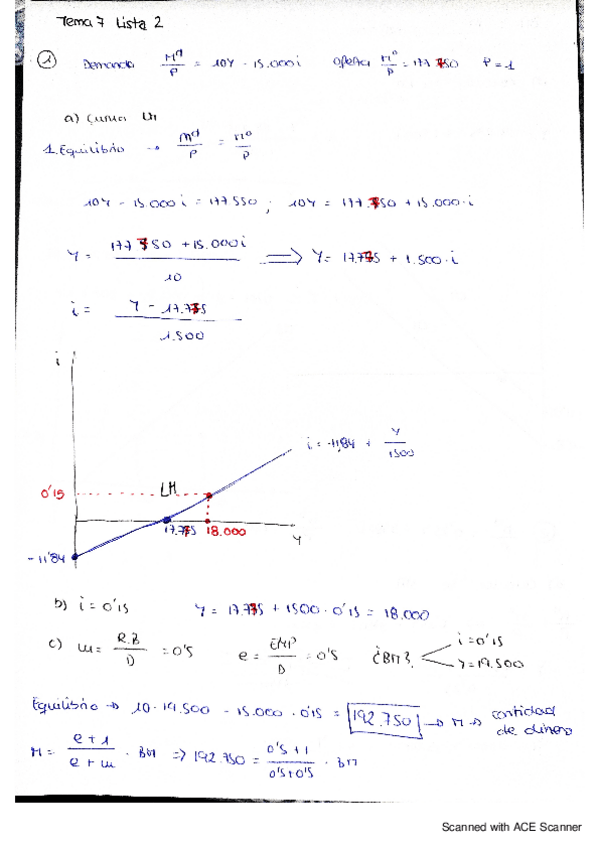 Tema 7 Lista 2
1 Demanda M^d/P = 10Y - 15.000i oferta M^o/P = 177750 P = 1
a) Curva LM
1. Equilibrio → M^d/P = M^o/P
10Y - 15.000i = 177550; 10Y = 177.750 + 15.000·i
Y = (177750 + 15.000i)/10 ⟹ Y = 17.775 + 1.500·i
i = (Y - 17.775)/1.500
i
i = -11,84 + Y/1500
0'15
LM
17.775 18.000 Y
-11'84
b) i = 0'15 Y = 17.775 + 1500·0'15 = 18.000
c) w = R.B/D = 0'5 e = EMP/D = 0'5 ¿BM? i = 0'15
Y = 19.500
Equilibrio → 10·19.500 - 15.000·0'15 = 192.750 → M → cantidad de dinero
M = (e+1)/(e+w) · BM ⇒ 192.750 = (0'5+1)/(0'5+0'5) · BM
Scanned with ACE Scanner